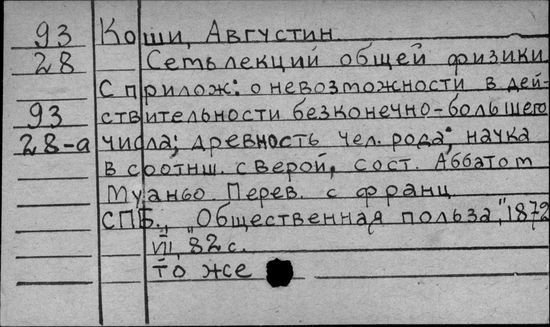 93 Коши, Августин
28 Семь лекций общей физики
С прилож: о невозможности в дей-
93 ствительности безконечно-большего
28-а числа; древность чел. рода; наука
в соотнш. с верой, сост. Аббатом
Муаньо. Перев. с франц
СПБ., "Общественная польза", 1872
VII, 82 с.
то же